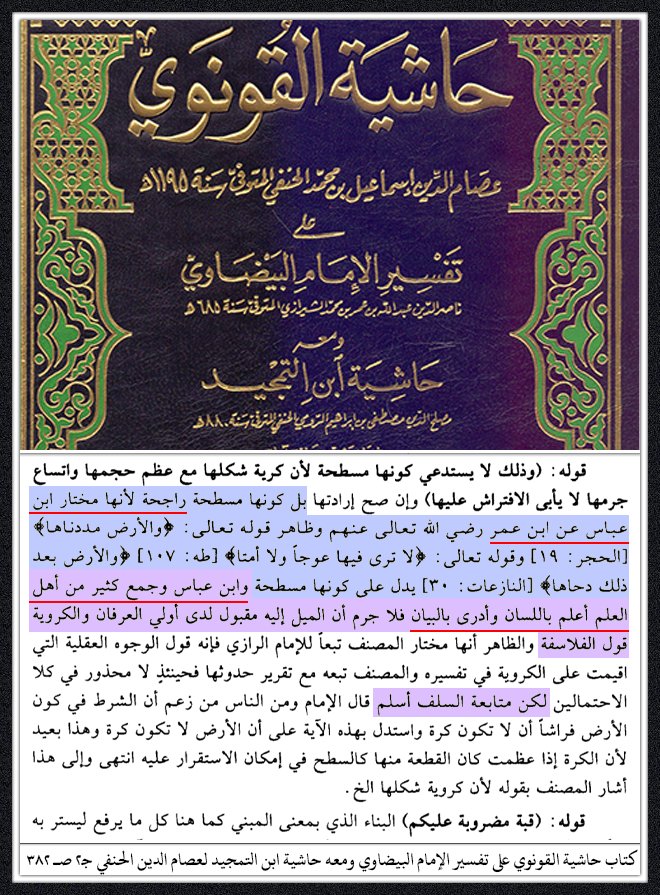 حاشية القونوي
عصام الدين إسماعيل بن محمد الحنفي المتوفى سنة ١١٩٥هـ
على
تفسير الإمام البيضاوي
ناصر الدين عبد الله بن عمر بن محمد الشيرازي المتوفى سنة ٦٨٥هـ
ومعه
حاشية ابن التمجيد
مصلح الدين مصطفى بن إبراهيم الرومي الحنفي المتوفى سنة ٨٨٠هـ
قوله: (وذلك لا يستدعي كونها مسطحة لأن كرية شكلها مع عظم حجمها واتساع
جرمها لا يأبى الافتراش عليها) وإن صح إرادتها بل كونها مسطحة راجحة لأنها مختار ابن
عباس عن ابن عمر رضي الله تعالى عنهم وظاهر قوله تعالى: ﴿والأرض مددناها﴾
[الحجر: ١٩] وقوله تعالى: ﴿لا ترى فيها عوجاً ولا أمتا﴾ [طه: ١٠٧] ﴿والأرض بعد
ذلك دحاها﴾ [النازعات: ٣٠] يدل على كونها مسطحة وابن عباس وجمع كثير من أهل
العلم أعلم باللسان وأدرى بالبيان فلا جرم أن الميل إليه مقبول لدى أولي العرفان والكروية
قول الفلاسفة والظاهر أنها مختار المصنف تبعاً للإمام الرازي فإنه قول الوجوه العقلية التي
اقيمت على الكروية في تفسيره والمصنف تبعه مع تقرير حدوثها فحينئذٍ لا محذور في كلا
الاحتمالين لكن متابعة السلف أسلم قال الإمام ومن الناس من زعم أن الشرط في كون
الأرض فراشاً أن لا تكون كرة واستدل بهذه الآية على أن الأرض لا تكون كرة وهذا بعيد
لأن الكرة إذا عظمت كان القطعة منها كالسطح في إمكان الاستقرار عليه انتهى وإلى هذا
أشار المصنف بقوله لأن كروية شكلها الخ.
قوله: (قبة مضروبة عليكم) البناء الذي بمعنى المبني كما هنا كل ما يرفع ليستر به
كتاب حاشية القونوي على تفسير الإمام البيضاوي ومعه حاشية ابن التمجيد لعصام الدين الحنفي ج٢ صـ ٣٨٢